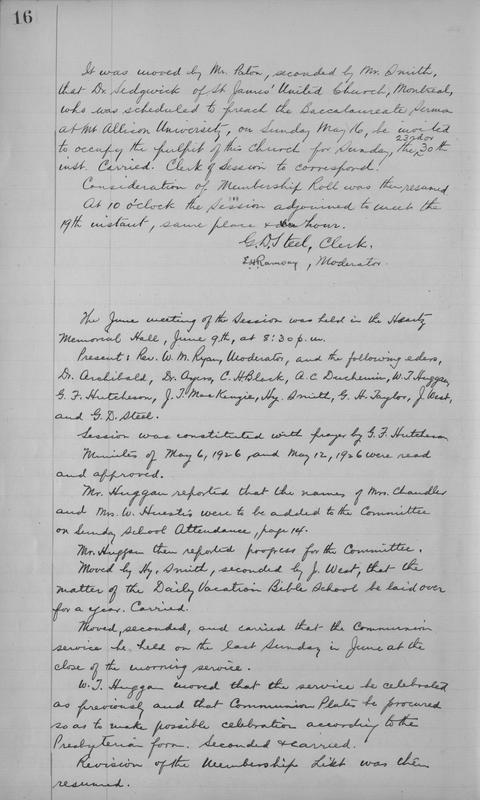 16
It was moved by Mr. Paton, seconded by Mr. Smith,
that Dr. Sedgwick of St James' United Church, Montreal,
who was scheduled to preach the Baccalaureate Sermon
at Mt Allison University, on Sunday May 16, be invited
to occupy the pulpit of this Church for Sunday, the 23rd or 30th
inst. Carried. Clerk of Session to correspond.
Consideration of Membership Roll was then resumed
At 10 o'clock the Session adjourned to meet the
19th instant, same place & hour.
G. D. Steel, Clerk.
, Moderator.
The June meeting of the Session was held in the Heartz
Memorial Hall, June 9th, at 8:30 p.m.
Present: Rev. W. M. Ryan, Moderator, and the following elders,
Dr. Archibald, Dr. Ayers, C. H. Black, A. C. Duchemin, W. T. Huggan,
G. F. Hutcheson, J. T. MacKenzie, Hy. Smith, G. H. Taylor, J. West,
and G. D. Steel.
Session was constituted with prayer by G. F. Hutcheson
Minutes of May 6, 1926, and May 12, 1926 were read
and approved.
Mr. Huggan reported that the names of Mrs. Chandler
and Mrs. W. Huestis were to be added to the Committee
on Sunday School Attendance, page 14.
Mr. Huggan then reported progress for the Committee.
Moved by Hy. Smith, seconded by J. West, that the
matter of the Daily Vacation Bible School be laid over
for a year. Carried.
Moved, seconded, and carried that the Communion
service be held on the last Sunday in June at the
close of the morning service.
W. T. Huggan moved that the service be celebrated
as previously and that Communion Plates be procured
so as to make possible celebration according to the
Presbyterian form. Seconded & carried.
Revision of the Membership List was then
resumed.